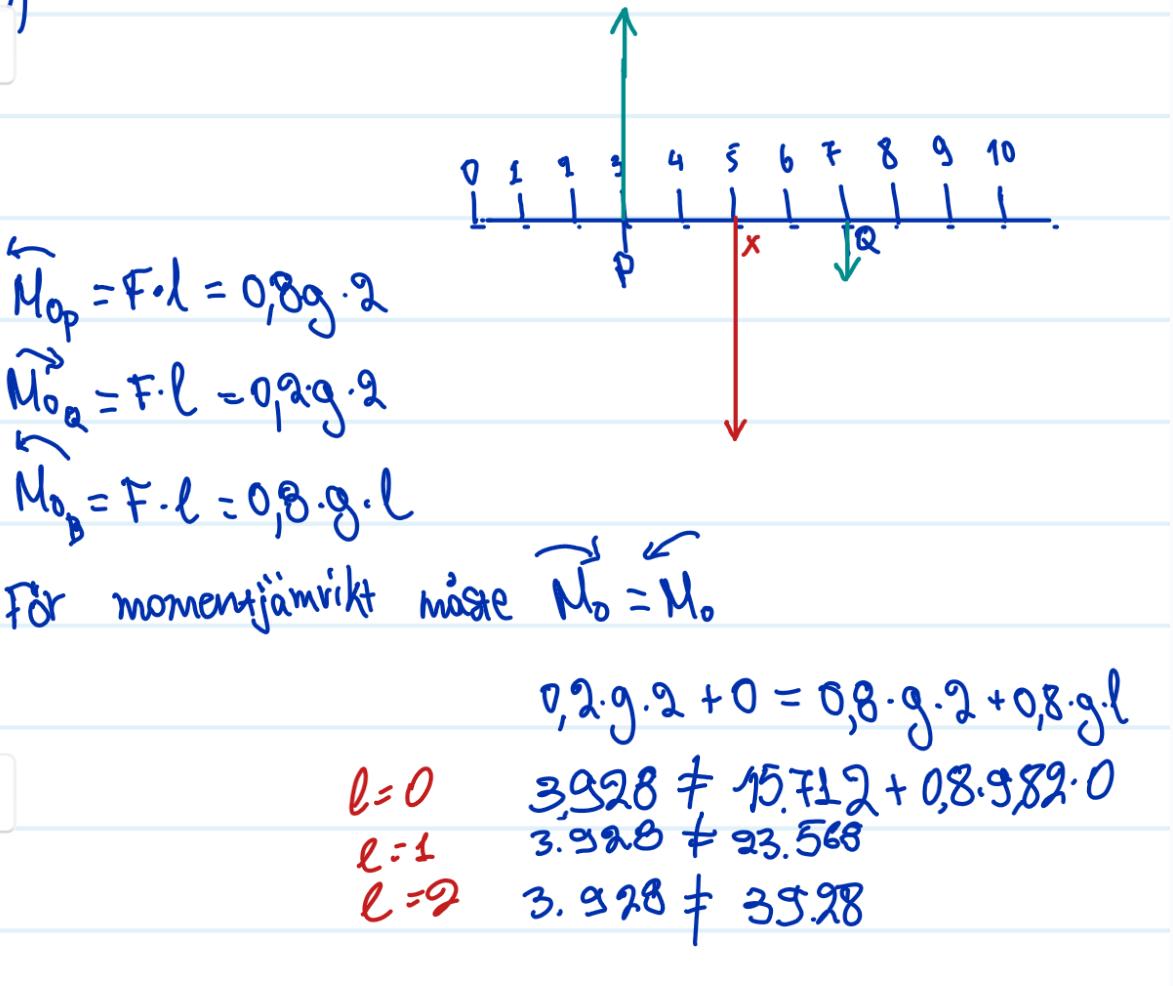 0 1 2 3 4 5 6 7 8 9 10
x
Q
P
M₀ₚ = F·l = 0,8g·2
M₀Q = F·l = 0,2·g·2
M₀B = F·l = 0,8·g·l
För momentjämrikt måste M₀ = M₀
0,2·g·2 + 0 = 0,8·g·2 + 0,8·g·l
l=0 3,928 ≠ 15.712 + 0,8·9,82·0
l=1 3.928 ≠ 23.568
l=2 3.928 ≠ 39.28